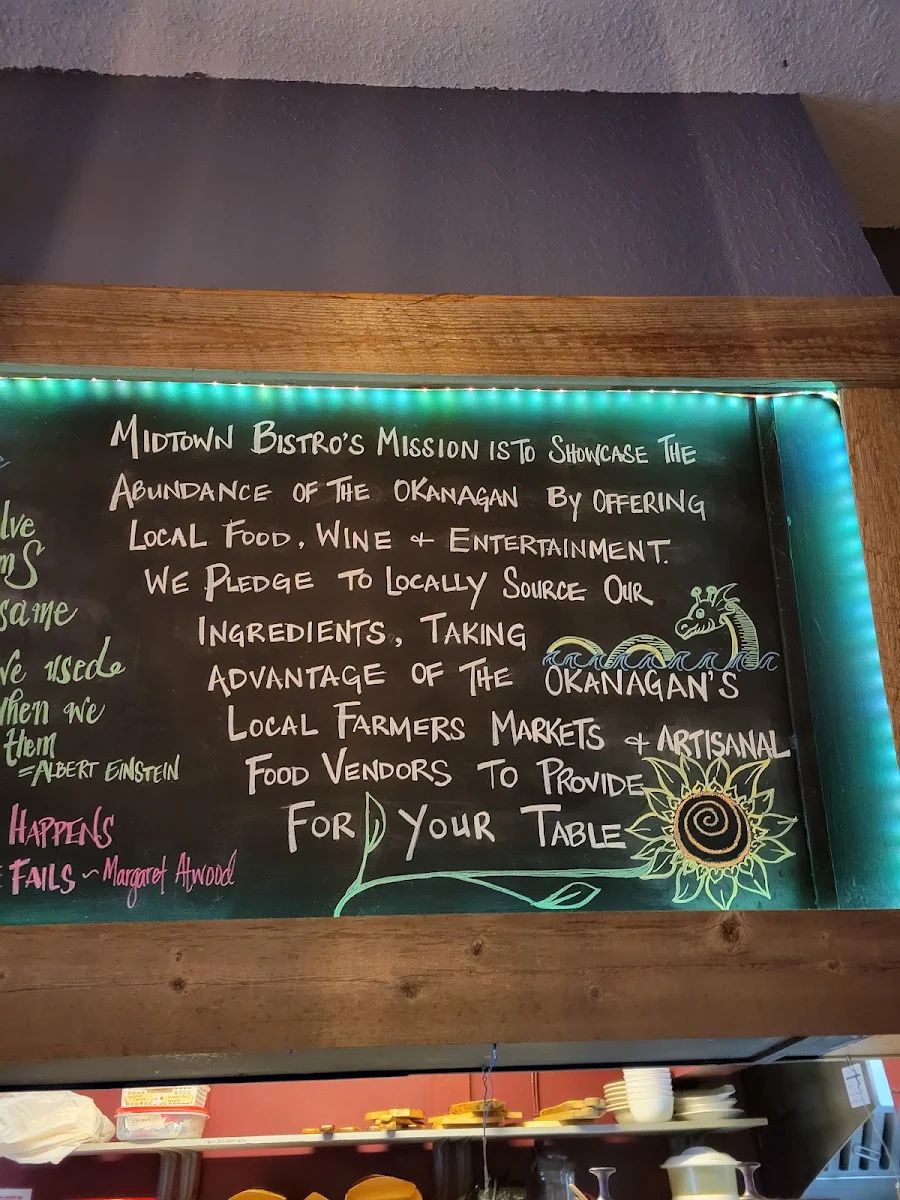 Midtown Bistro's Mission is To Showcase The
Abundance of The Okanagan By Offering
Local Food, Wine & Entertainment.
We Pledge to Locally Source Our
Ingredients, Taking
Advantage of The Okanagan's
Local Farmers Markets & Artisanal
Food Vendors To Provide
For Your Table
lve
ms
same
we used
when we
them
=Albert Einstein
Happens
Fails ~Margaret Atwood